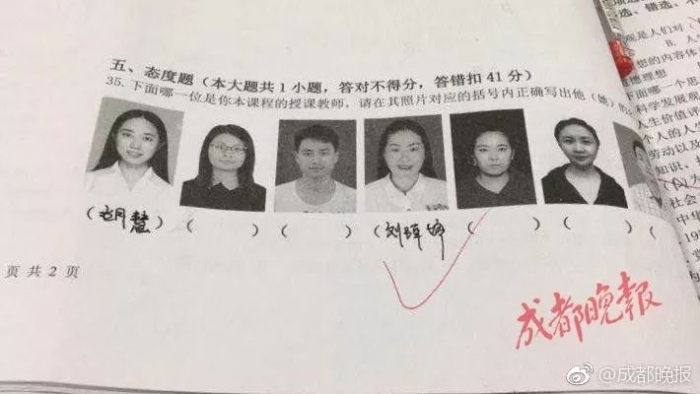 五、态度题（本大题共 1 小题，答对不得分，答错扣 41 分）
35. 下面哪一位是你本课程的授课教师，请在其照片对应的括号内正确写出他（她）的
（胡慧）（ ）（ ）（刘 婷）（ ）（ ）（
页 共 2 页
选、错选、不
观是人们对（
B. 人
想的内容体
德理想
面哪一个思
科学发展观
人生价值评
个人的人
劳动以及
知识，
（ ）为
社会
中华
成都晚报
@成都晚报